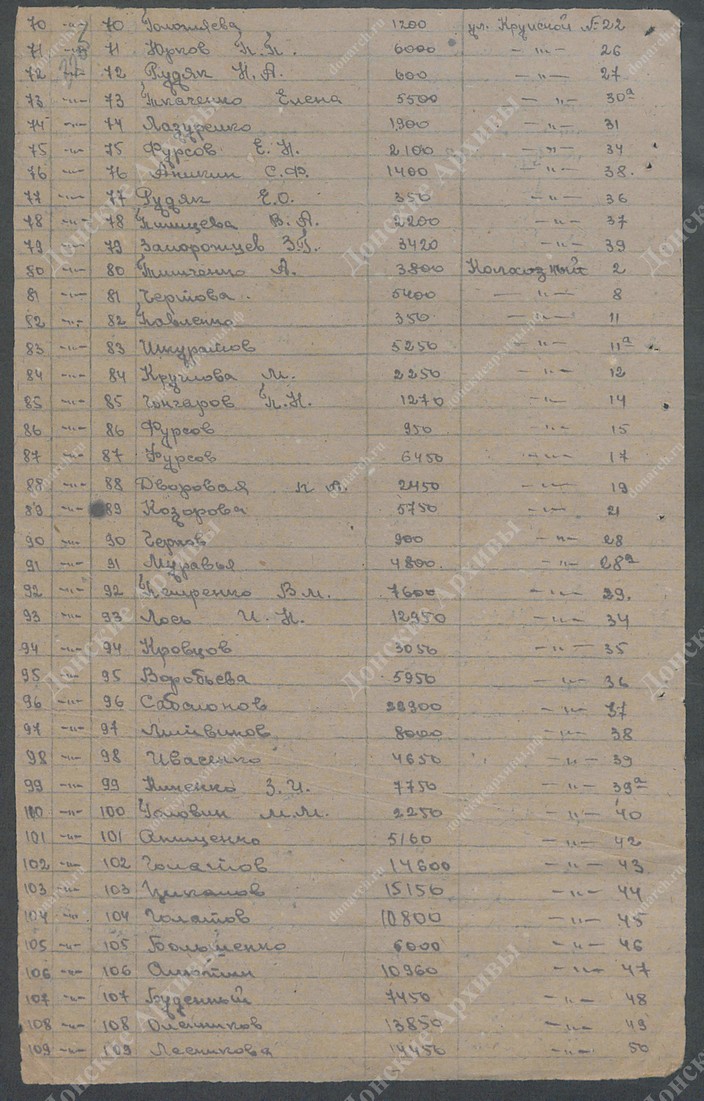 70 -"- 70 Голотляева 1200 ул. Крупской № 22
71 -"- 71 Юрков П.П. 6000 -"- 26
72 -"- 72 Рудяк Н.А. 600 -"- 27
73 -"- 73 Ткаченко Елена 5500 -"- 30а
74 -"- 74 Лазуренко 1900 -"- 31
75 -"- 75 Фурсов Е.Н. 2100 -"- 34
76 -"- 76 Аникин С.Ф. 1400 -"- 38.
77 -"- 77 Рудяк Е.О. 350 -"- 36
78 -"- 78 В.А. 2200 -"- 37
79 -"- 79 Запорожцев З.П. 3420 -"- 39
80 -"- 80 Тимченко А. 3800 Колхозный 2
81 -"- 81 Чертова. 5400 -"- 8
82 -"- 82 Павленко 350 -"- 11
83 -"- 83 Шкуратов 5250 -"- 11а
84 -"- 84 Круглова М. 2250 -"- 12
85 -"- 85 Гончаров П.Н. 1270 -"- 14
86 -"- 86 Фурсов 950 -"- 15
87 -"- 87 Фурсов 6450 -"- 17
88 -"- 88 Дворовая П А. 2450 -"- 19
89 -"- 89 Козорова 5750 -"- 21
90 -"- 90 Чертов 900 -"- 28
91 -"- 91 Муравья 4800. -"- 28а
92 -"- 92 Петренко В.М. 7600 -"- 29.
93 -"- 93 Лось И.Н. 12950 -"- 34
94 -"- 94 Кровцов 3050 -"- 35
95 -"- 95 Воробьева 5950 -"- 36
96 -"- 96 Сабалонов 22900 -"- 37
97 -"- 97 Литвинов 8000 -"- 38
98 -"- 98 Ивасенко 4650 -"- 39
99 -"- 99 З.И. 7750 -"- 39а
100 -"- 100 Головин М.М. 2250 -"- 40
101 -"- 101 Онищенко 5160 -"- 42
102 -"- 102 Голатов 14600 -"- 43
103 -"- 103 Цыкалов 15150 -"- 44
104 -"- 104 Голатов 10800 -"- 45
105 -"- 105 6000 -"- 46
106 -"- 106 10960 -"- 47
107 -"- 107 Буденный 7450 -"- 48
108 -"- 108 Олейников 13850 -"- 49
109 -"- 109 Лесникова 14450 -"- 50
Донские Архивы
donarch.ru
донскиеархивы.рф